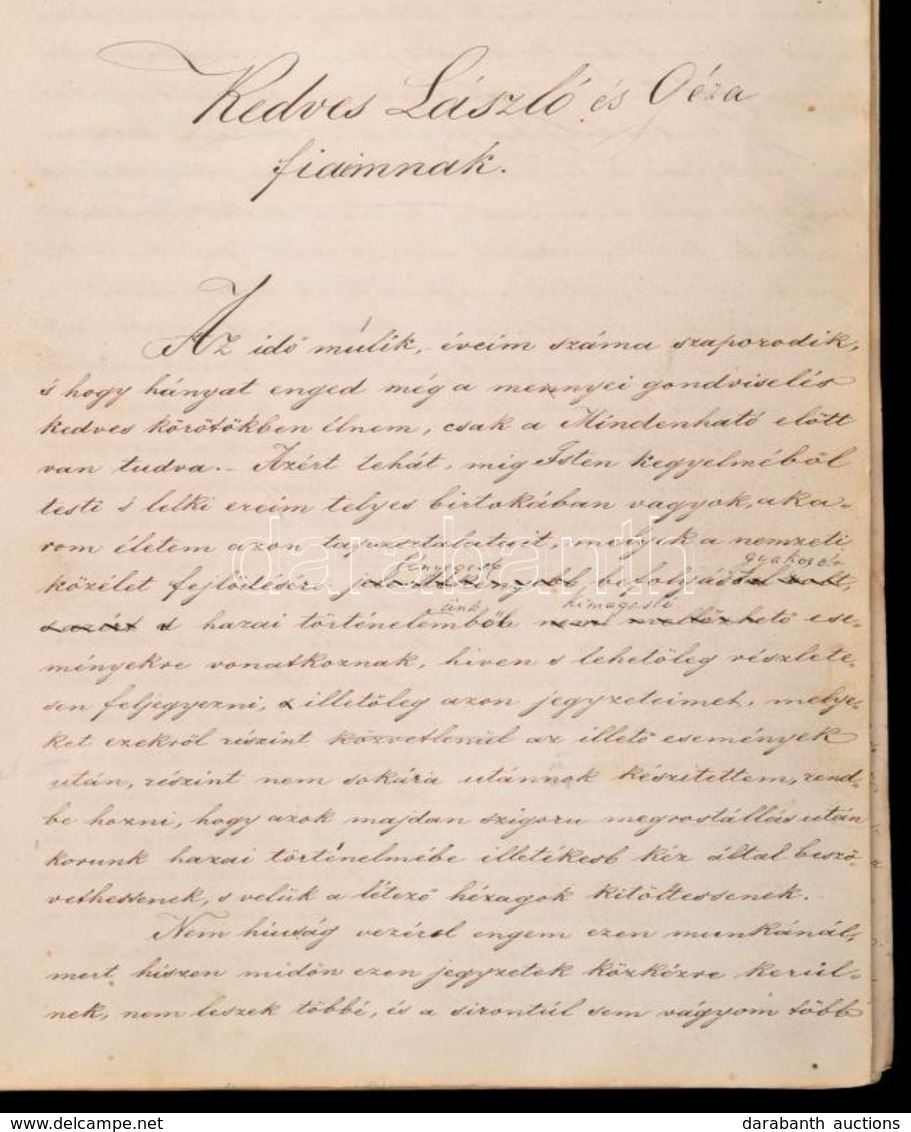 Kedves László és Géza
fiaimnak.
Az idő múlik, éveim száma szaporodik,
s hogy hányat enged még a mennyei gondviselés
kedves körötökben élnem, csak a Mindenható előtt
van tudva. – Azért tehát, mig Isten kegyelméből
testi s lelki ereim telyes birtokában vagyok, aka-
rom életem azon tapasztalatait, melyek a nemzeti
lényegesb gyakorol-
közélet fejlődésére befolyást
ünk kimagasló
hazai történelemből ese-
ményekre vonatkoznak, hiven s lehetőleg részlete-
sen feljegyezni, s illetőleg azon jegyzeteimet, melye-
ket ezekről részint közvetlenül az illető események
után, részint nem sokára utánnok készitettem, rend-
be hozni, hogy azok majdan szigoru megrostállás után
korunk hazai történelmébe illetékesb kéz által beszö-
vethessenek, s velük a létező hézagok kitöltessenek. –
Nem hiuság vezérel engem ezen munkánál,
mert hiszen midőn ezen jegyzetek közkézre kerül-
nek, nem leszek többé, és a sirontúl sem vágyom több
darabanth
www.delcampe.net
darabanth auctions